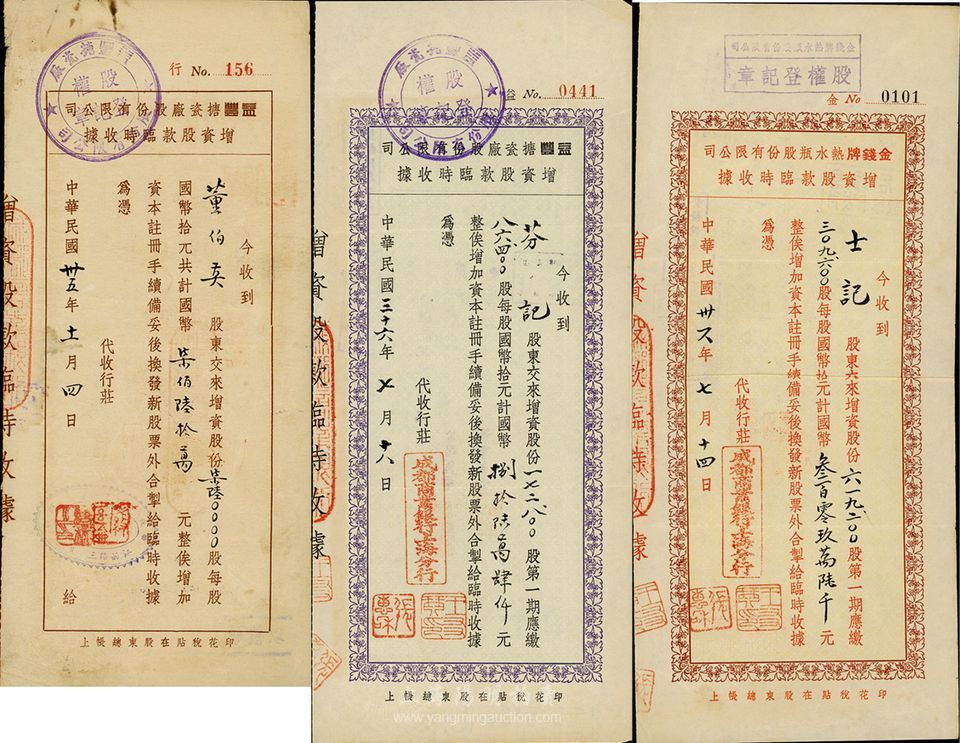 行 No. 156
益豐搪瓷廠股份有限公司
增資股款臨時收據
今收到
董伯英 股東交來增資股份柒陸〇〇〇〇股每股
國幣拾元共計國幣柒佰陸拾萬 元整俟增加
資本註冊手續備妥後換發新股票外合掣給臨時收據
為憑
代收行莊
中華民國卅五年十一月四日 給
印花稅貼在股東總帳上
股權登記章
益 No. 0441
益豐搪瓷廠股份有限公司
增資股款臨時收據
今收到
芬記 股東交來增資股份一七二八〇〇股第一期應繳
八六四〇〇股每股國幣拾元計國幣捌拾陸萬肆仟元
整俟增加資本註冊手續備妥後換發新股票外合掣給臨時收據
為憑
代收行莊
成都商業銀行上海分行
中華民國三十六年七月十八日
印花稅貼在股東總帳上
股權登記章
金錢牌熱水瓶股份有限公司
股權登記章
金 No 0101
金錢牌熱水瓶股份有限公司
增資股款臨時收據
今收到
士記 股東交來增資股份六一九二〇〇股第一期應繳
三〇九六〇〇股每股國幣拾元計國幣叁百零玖萬陸千元
整俟增加資本註冊手續備妥後換發新股票外合掣給臨時收據
為憑
代收行莊
成都商業銀行上海分行
中華民國卅六年七月十四日
印花稅貼在股東總帳上
增資股款臨時收據
增資股款臨時收據
www.yangmingauction.com